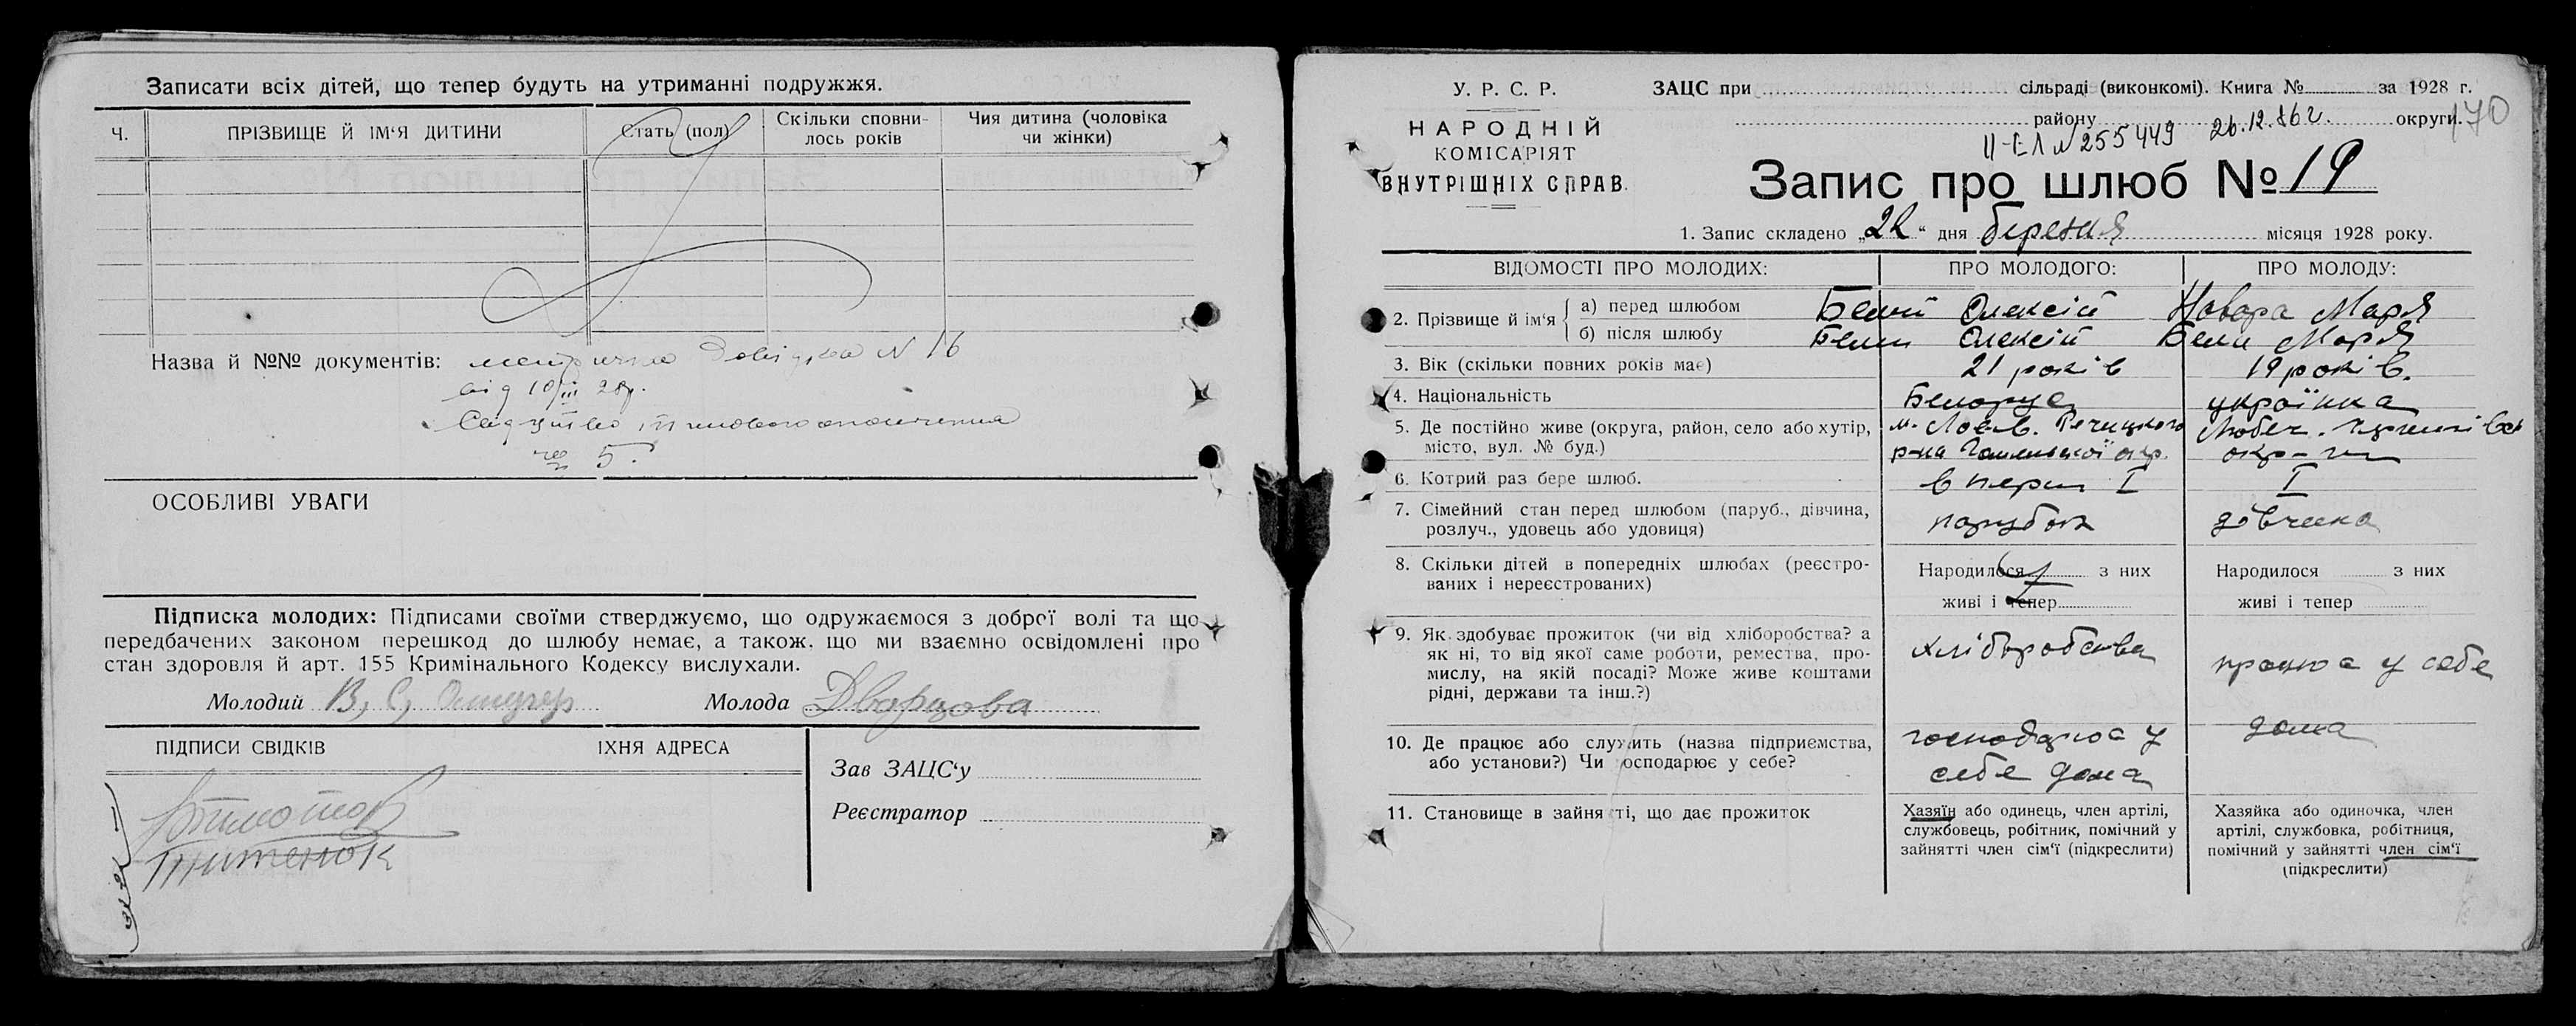 Записати всіх дітей, що тепер будуть на утриманні подружжя.
Ч.
ПРІЗВИЩЕ Й ІМ'Я ДИТИНИ
Стать (пол)
Скільки сповни-
лось років
Чия дитина (чоловіка
чи жінки)
Назва й №№ документів: метрична довідка N 16
від 10/III 28р.
5.
ОСОБЛИВІ УВАГИ
Підписка молодих: Підписами своїми стверджуємо, що одружаємося з доброї волі та що
передбачених законом перешкод до шлюбу немає, а також, що ми взаємно освідомлені про
стан здоровля й арт. 155 Кримінального Кодексу вислухали.
Молодий В, С,
Молода Дварцова
ПІДПИСИ СВІДКІВ
ІХНЯ АДРЕСА
Зав ЗАЦС'у
Реєстратор
Титенок
У. Р. С. Р.
НАРОДНІЙ
КОМІСАРІЯТ
ВНУТРІШНІХ СПРАВ.
ЗАЦС при сільраді (виконкомі). Книга № за 1928 г.
району округи. 170
II-ЕЛ N 255449 26.12.86г.
Запис про шлюб № 19
1. Запис складено „22“ дня березня місяця 1928 року.
ВІДОМОСТІ ПРО МОЛОДИХ:
ПРО МОЛОДОГО:
ПРО МОЛОДУ:
2. Прізвище й ім'я
а) перед шлюбом
Белий Олексій
Марія
б) після шлюбу
Олексій
Марія
3. Вік (скільки повних років має)
21 років
19 років.
4. Національність
Белорус
українка
5. Де постійно живе (округа, район, село або хутір,
місто, вул. № буд.)
м. Лоєв. Речицкого
р-на Гомельської окр.
Любеч.
6. Котрий раз бере шлюб.
в перш I
I
7. Сімейний стан перед шлюбом (паруб., дівчина,
розлуч., удовець або удовиця)
парубок
дівчина
8. Скільки дітей в попередніх шлюбах (реєстро-
ваних і нереєстрованих)
Народилося з них
живі і тепер
Народилося з них
живі і тепер
9. Як здобуває прожиток (чи від хліборобства? а
як ні, то від якої саме роботи, ремества, про-
мислу, на якій посаді? Може живе коштами
рідні, держави та інш.?)
хліборобства
працює у себе
10. Де працює або служить (назва підприємства,
або установи?) Чи господарює у себе?
господарює у
себе дома
дома
11. Становище в зайнятті, що дає прожиток
Хазяїн або одинець, член артілі,
службовець, робітник, помічний у
зайнятті член сім'ї (підкреслити)
Хазяйка або одиночка, член
артілі, службовка, робітниця,
помічний у зайнятті член сім'ї
(підкреслити)